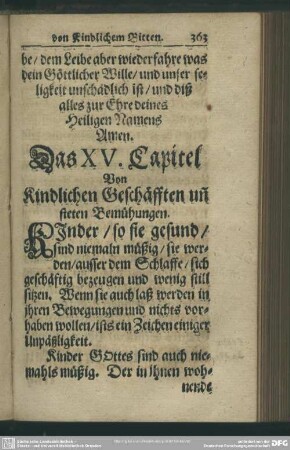 von Kindlichem Bitten. 363
be / dem Leibe aber wiederfahre was
dein Göttlicher Wille / und unser se-
ligkeit unschädlich ist / und diß
alles zur Ehre deines
Heiligen Namens
Amen.
Das XV. Capitel
Von
Kindlichen Geschäfften uñ
steten Bemühungen.
KInder / so sie gesund /
sind niemaln müßig / sie wer-
den / ausser dem Schlaffe / sich
geschäftig bezeugen und wenig still
sitzen. Wenn sie auch laß werden in
ihren Bewegungen und nichts vor-
haben wollen / ists ein Zeichen einiger
Unpäßligkeit.
Kinder GOttes sind auch nie-
mahls müßig. Der in Ihnen woh-
nende
DFG